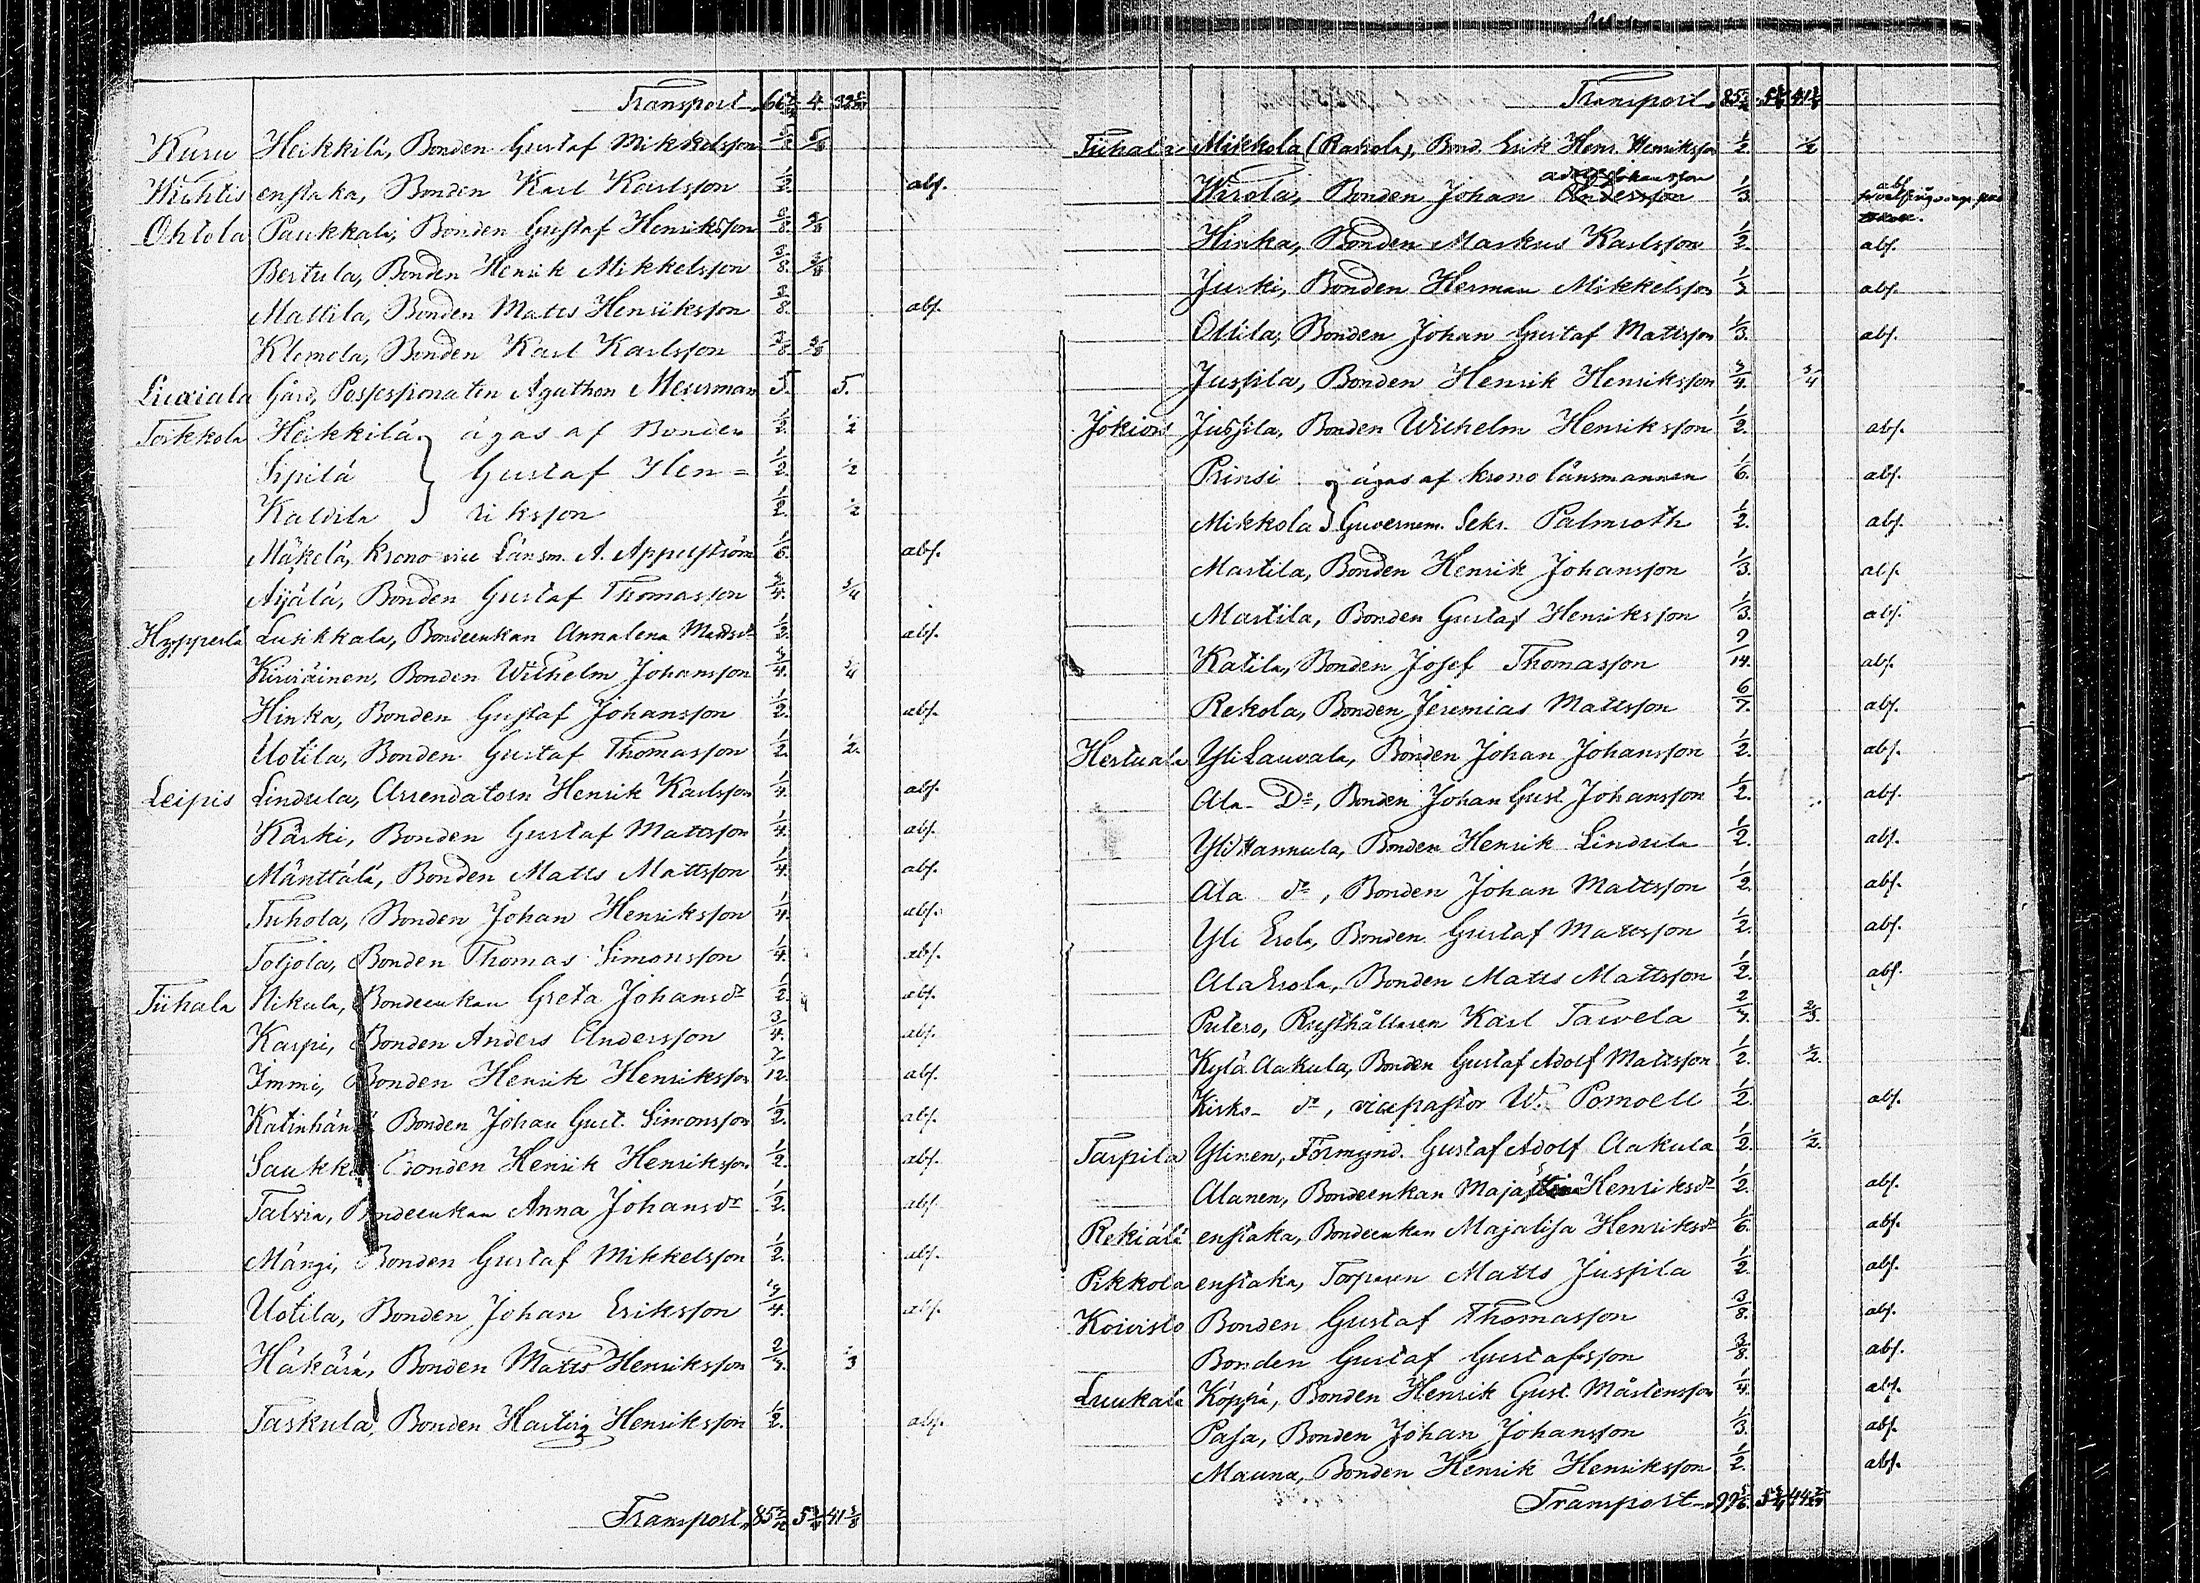 Transport 66 4. 32
Kuru Heikkilä, Bonden Gustaf Mikkelsson 5/8
Wiihtis enstaka, Bonden Karl Karlsson 1/2. abs.
Ohtola Paukkala, Bonden Gustaf Henriksson 3/8. 3/8
Bertula, Bonden Henrik Mikkelsson 3/8. 3/8
Mattila, Bonden Matts Henriksson 3/8. abs.
Klemola, Bonden Karl Karlsson 3/8 3/8
Liuxiala Gård, Possessionaten Agathon Meurman 5. 5.
Torkkola Heikkilä ägas af Bonden 1/2. 1/2
Sipilä Gustaf Hen= 1/2. 1/2
Kaldila riksson 1/2. 1/2
Mäkelä, Krono vice Länsm. A. Appelström 1/6. abs.
Äijälä, Bonden Gustaf Thomasson 3/4. 3/4
Hypperlä Lusikkala, Bondeenkan Annalena Mattsdr abs.
Kiviäinen, Bonden Wilhelm Johansson 3/4. 3/4
Hinka, Bonden Gustaf Johansson 1/2. abs.
Uotila, Bonden Gustaf Thomasson 1/2. 1/2.
Leipis Lindula, Arrendatorn Henrik Karlsson 1/4. abs.
Kärki, Bonden Gustaf Mattsson 1/4. abs.
Mänttälä, Bonden Matts Mattsson 1/4. abs.
Tuhola, Bonden Johan Henriksson 1/4. abs.
Toijola, Bonden Thomas Simonsson 1/4. abs.
Tiihala Nikula, Bondeenkan Greta Johansdr 1/2. abs.
Karpi, Bonden Anders Andersson 3/4. abs.
Immi, Bonden Henrik Henriksson 7/12. abs.
Bonden Johan Gust. Simonsson 1/2. abs.
Bonden Henrik Henriksson 1/2. abs.
Talvia, Bondeenkan Anna Johansdr 1/2. abs.
Mängi, Bonden Gustaf Mikkelsson 1/2. abs.
Uotila, Bonden Johan Eriksson 3/4. abs.
Häkärä, Bonden Matts Henriksson 2/3.
Taskula, Bonden Hartvig Henriksson 1/2. abs.
Transport 85 5 41
Transport 85 5 41
Tiihala Mikkola (Rakola), Bond. Erik Henr. Henriksson 1/2. 1/2
Adolf Johansson
Wirola, Bonden Johan Andersson 1/3. abs.
Hinka, Bonden Markus Karlsson 1/2. abs.
Jurki, Bonden Herman Mikkelsson abs.
Ottila, Bonden Johan Gustaf Mattsson 1/3. abs.
Jussila, Bonden Henrik Henriksson 3/4. 3/4
Jokiois Jussila, Bonden Wilhelm Henriksson 1/2. abs.
Prinsi ägas af krono länsmannen 1/6. abs.
Mikkola Guvernem. Sekr. Palmroth 1/2. abs.
Martila, Bonden Henrik Johansson 1/3. abs.
Martila, Bonden Gustaf Henriksson 1/3. abs.
Katila, Bonden Josef Thomasson 9/14. abs.
Rekola, Bonden Jeremias Mattsson 6/7. abs.
Hertuala Yli Lauvala, Bonden Johan Johansson 1/2. abs.
Ala- Do, Bonden Johan Gust. Johansson 1/2. abs.
Yli Hannula, Bonden Henrik Lindula 1/2. abs.
Ala do, Bonden Johan Mattsson 1/2. abs.
Yli Erola, Bonden Gustaf Mattsson 1/2. abs.
Ala Erola, Bonden Matts Mattsson 1/2. abs.
Putero, Rusthållaren Karl Tawela 2/3. 2/3.
Kylä Aakula, Bonden Gustaf Adolf Mattsson 1/2. 1/2.
Kirko- do, vicepastor W. Pomoell 1/2. abs.
Tarpila Ylinen, Förmynd. Gustaf Adolf Aakula 1/2. 1/2.
Alanen, Bondeenkan Maja Henriksdr 1/2. abs.
Rekiälä enstaka, Bondeenkan Majalisa Henriksdr 1/6. abs.
Pikkola enstaka, Torparen Matts Jussila 1/2. abs.
Koivisto Bonden Gustaf Thomasson 3/8. abs.
Bonden Gustaf Gustafsson 3/8. abs.
Luukala Köppä, Bonden Henrik Gust. Mårtensson 1/4. abs.
Pasa, Bonden Johan Johansson 1/3. abs.
Mauna, Bonden Henrik Henriksson 1/2. abs.
Transport 99 5 44